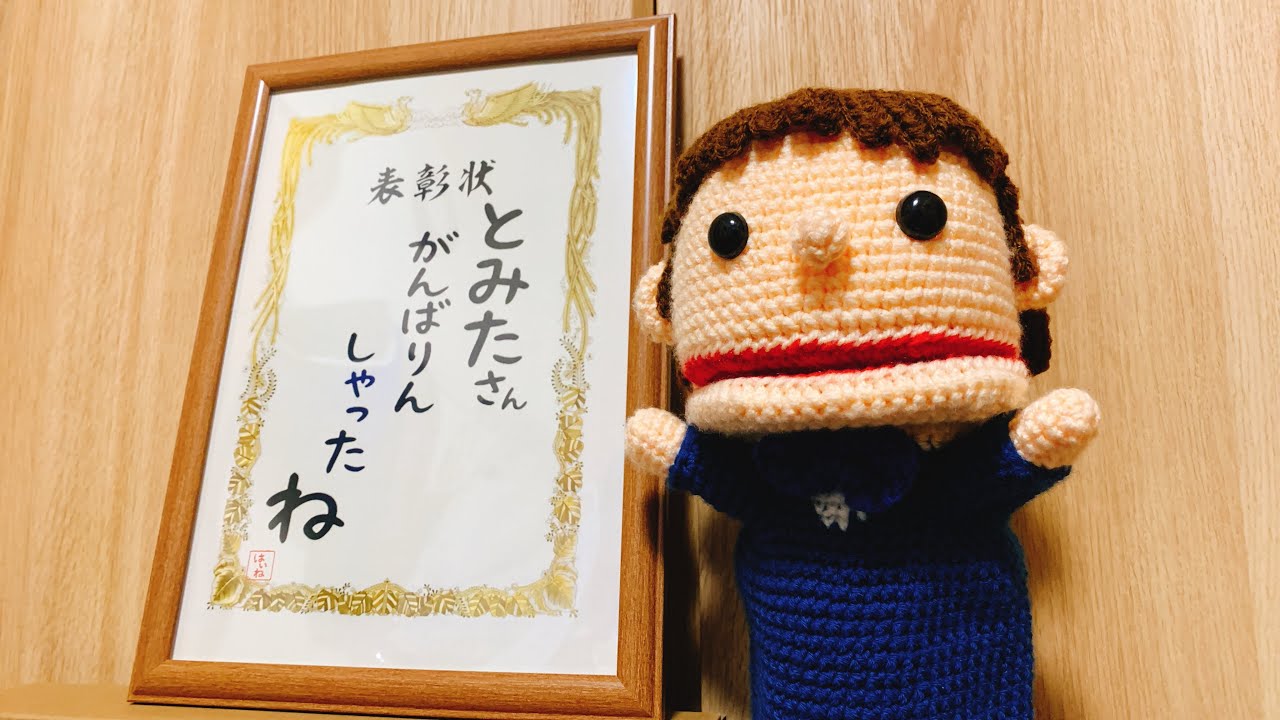 表彰状
とみたさん
がんばりん
しゃった
ね
はいね